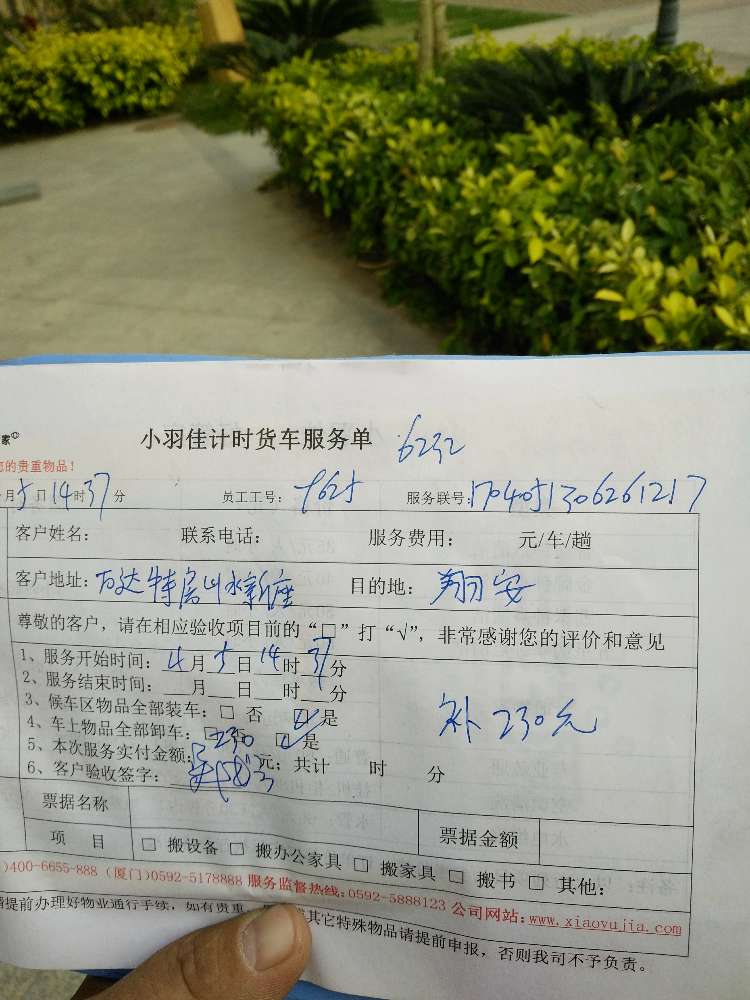 家©
小羽佳计时货车服务单 6232
您的贵重物品!
月5日14时37分 员工工号: 7625 服务联号:1704051306261217
客户姓名: 联系电话: 服务费用: 元/车/趟
客户地址:万达特房山水新座 目的地: 翔安
尊敬的客户,请在相应验收项目前的“□”打“√”,非常感谢您的评价和意见
1、服务开始时间:4月5日14时37分
2、服务结束时间:__月__日__时__分
3、候车区物品全部装车:□ 否 ☑是
4、车上物品全部卸车:□ 否 ☑是
补230元
5、本次服务实付金额:230元;共计 时 分
6、客户验收签字:
票据名称 票据金额
项 目 □ 搬设备 □ 搬办公家具 □ 搬家具 □ 搬书 □ 其他:
)400-6655-888 (厦门)0592-5178888 服务监督热线:0592-5888123 公司网站:www.xiaoyujia.com
提前办理好物业通行手续,如有贵重 其它特殊物品请提前申报,否则我司不予负责。